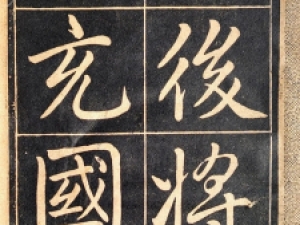 後將
充國